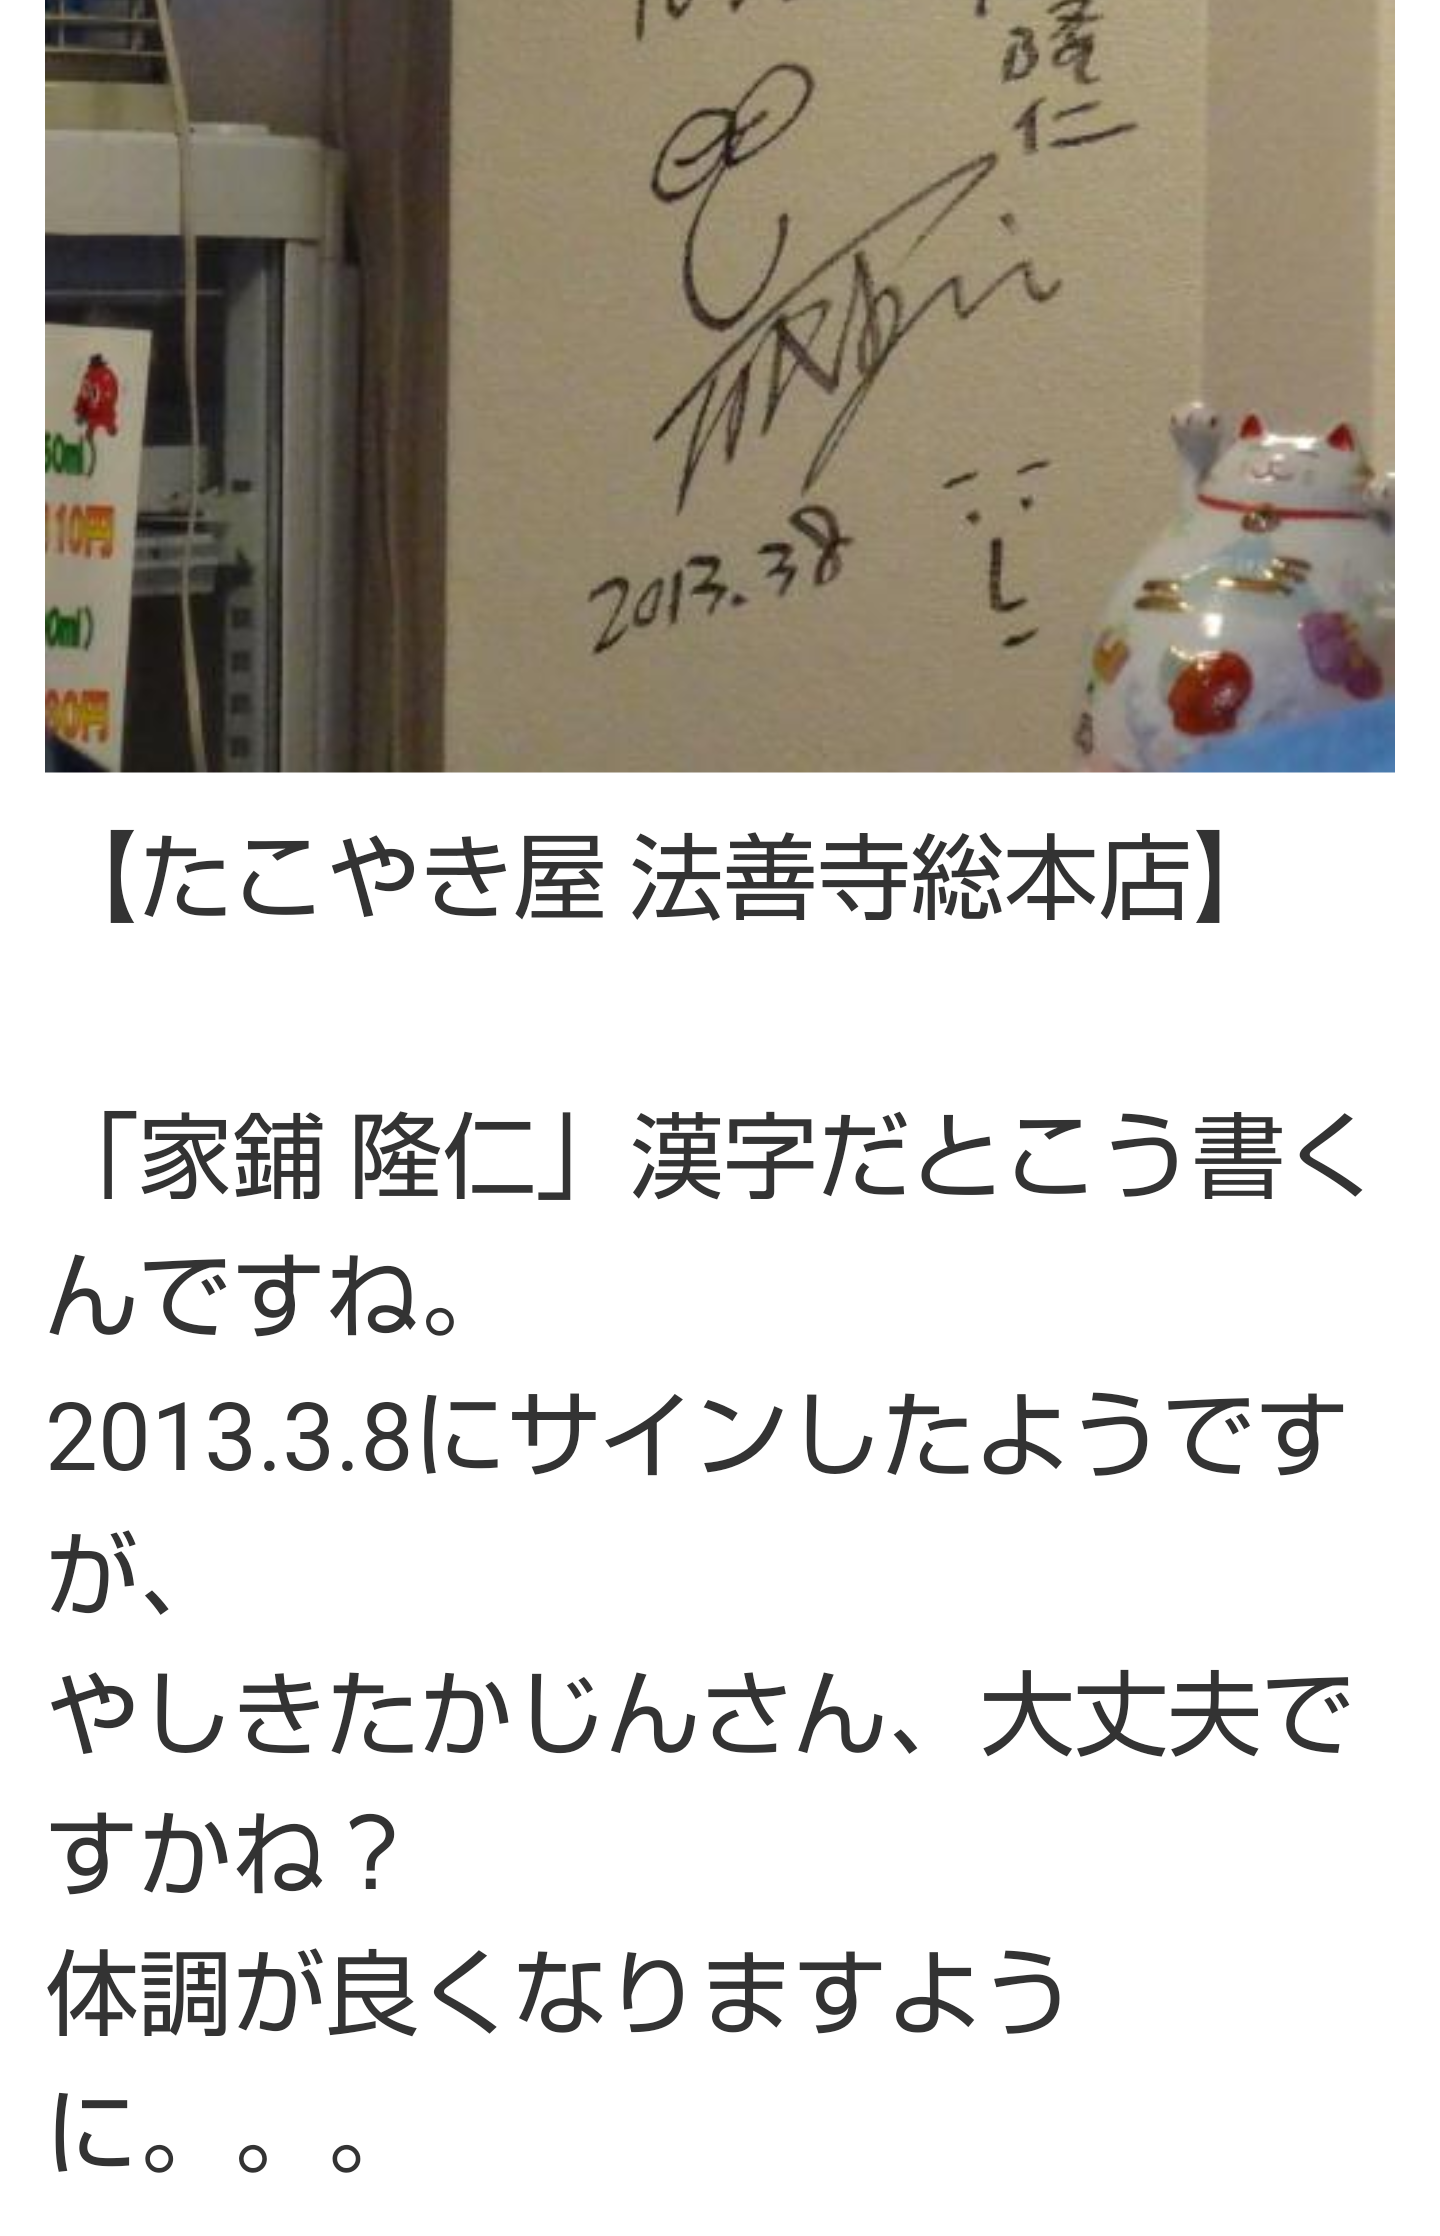 隆
仁
2013.38
50ml)
110円
0ml)
80円
【たこやき屋 法善寺総本店】
「家鋪 隆仁」漢字だとこう書く
んですね。
2013.3.8にサインしたようです
が、
やしきたかじんさん、大丈夫で
すかね？
体調が良くなりますよう
に。。。